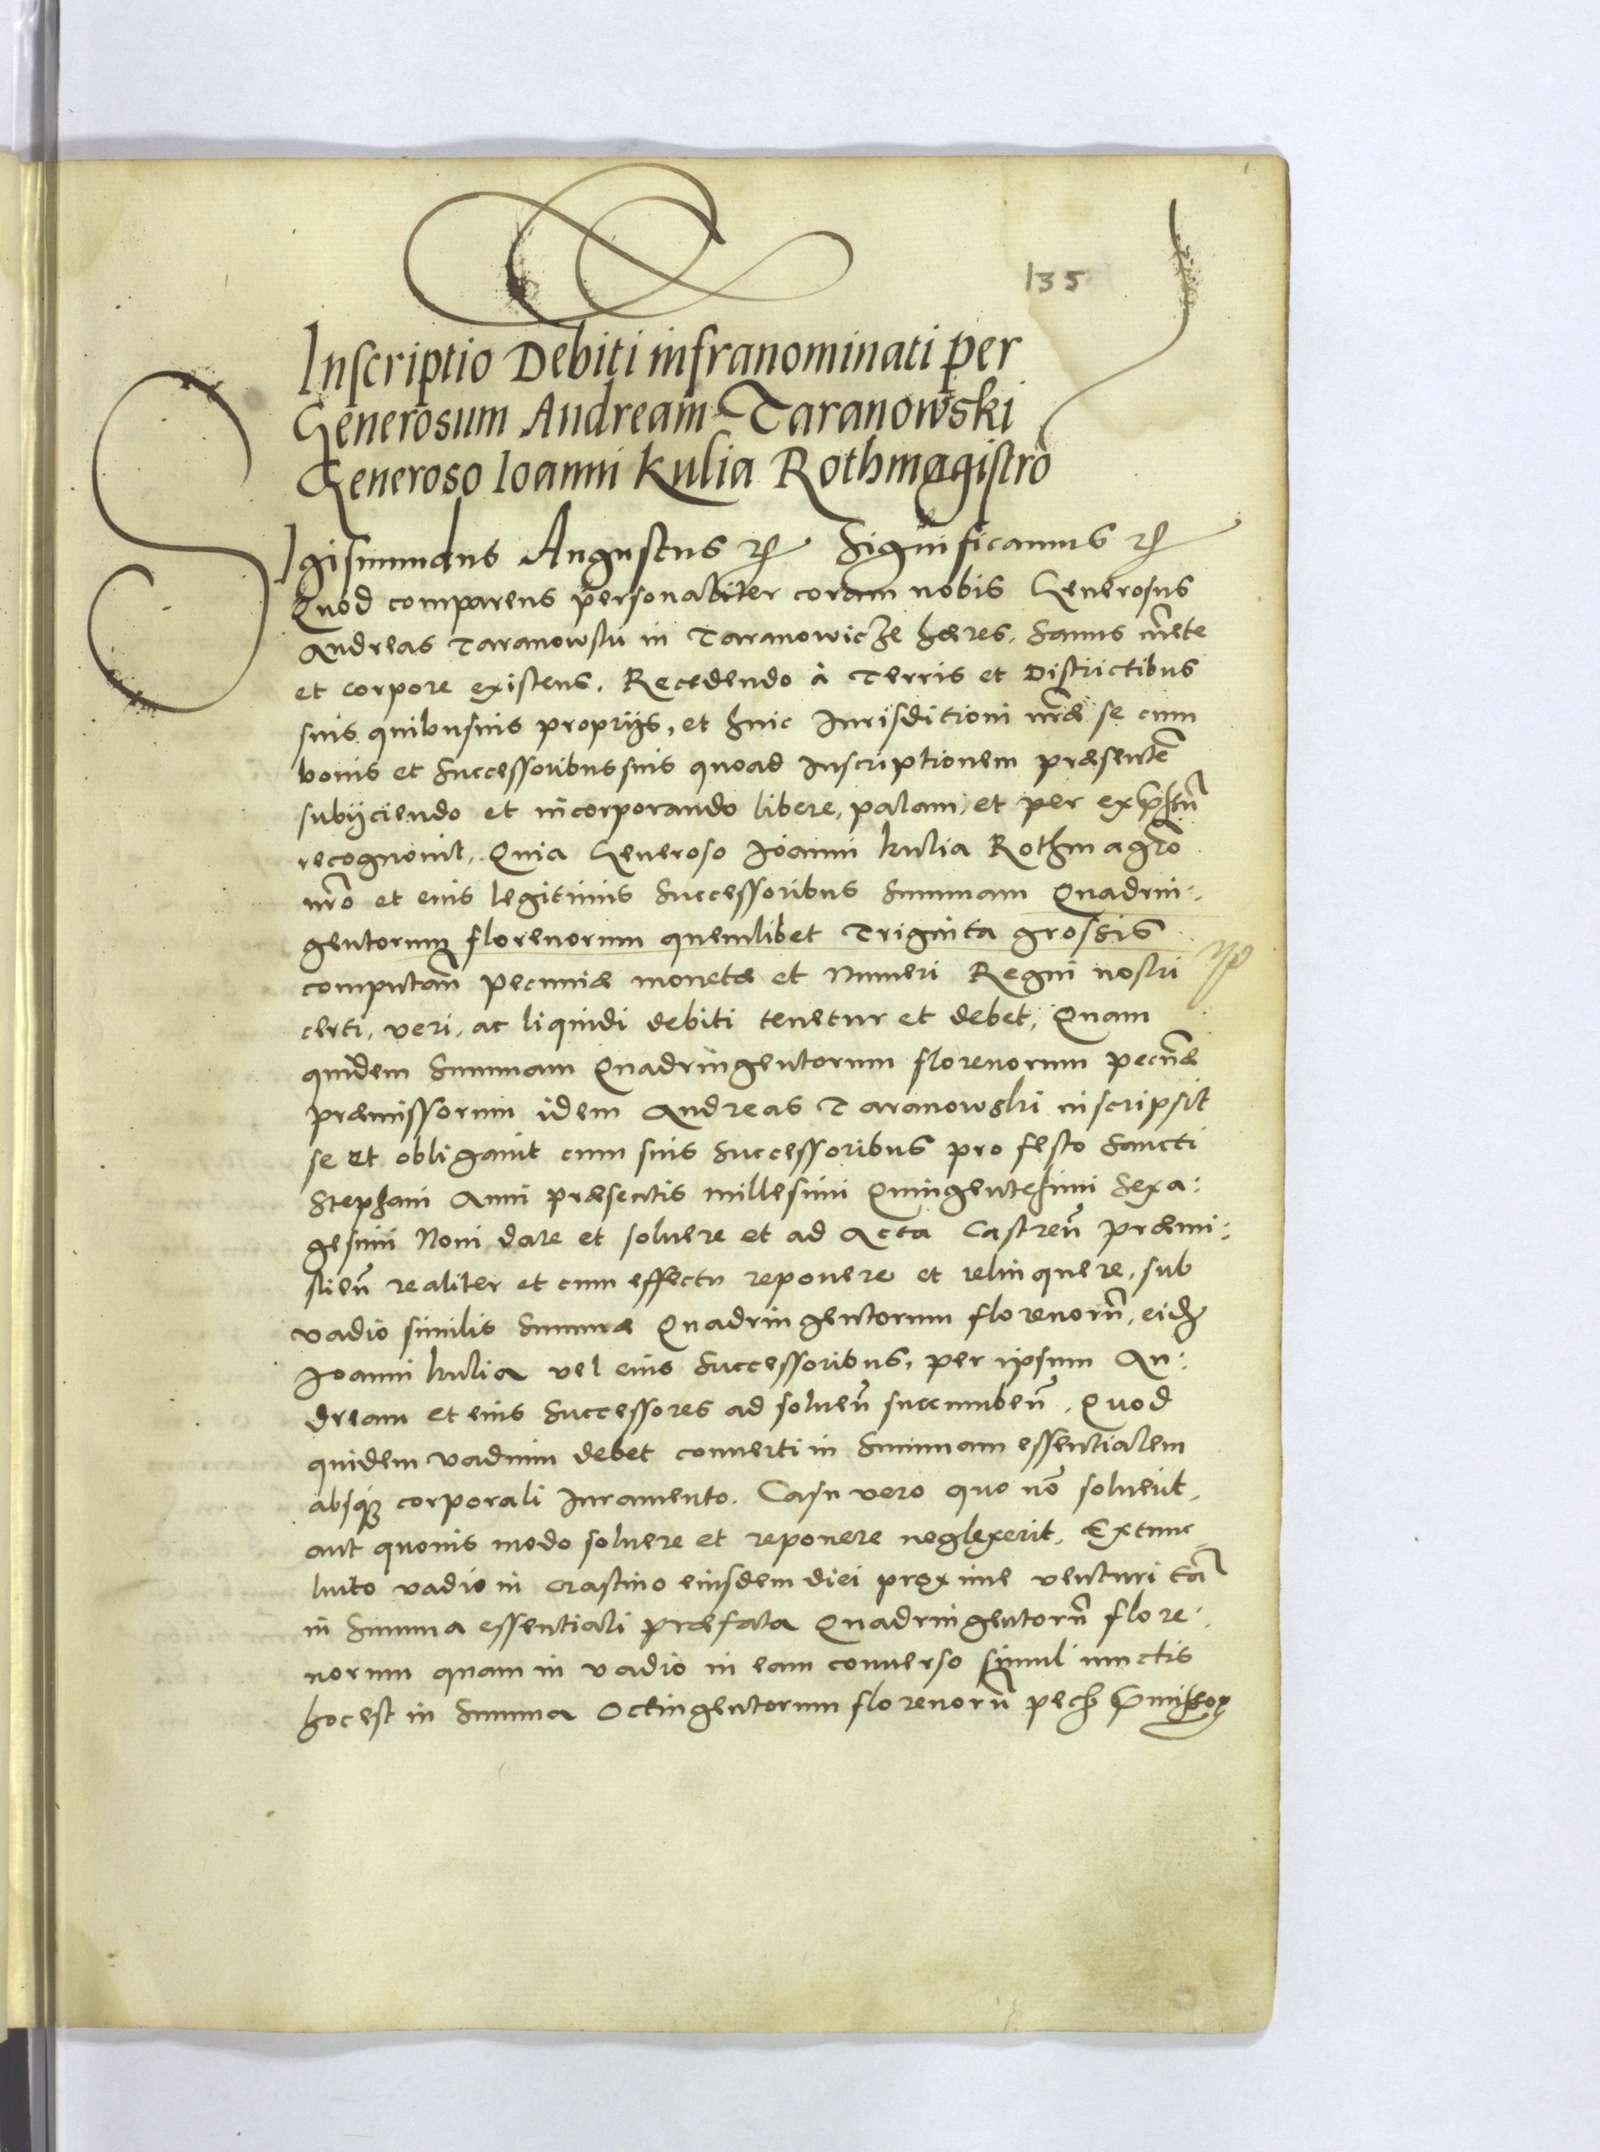 135
Inscriptio Debiti infranominati per
Generosum Andream Taranowski
Generoso Ioanni Kulia Rothmagistro
Sigismundus Augustus etc Significamus etc
Quod comparens personaliter coram nobis Generosus
Andreas Taranowski in Taranowicze hæres, sanus mēte
et corpore existens, Recedendo à Terris et Districtibus
suis quibusuis proprijs, et huic Iurisditioni nr̃æ se cum
bonis et successoribus suis quoad Inscriptionem præsentē
subijciendo et incorporando libere, palam, et per exp̃ssũ
recognouit, Quia Generoso Ioanni Kulia Rothmagr̃o
nr̃o et eius legitimis Successoribus Summam Quadrin:
gentorum florenorum quemlibet Triginta grossis
computañ pecuniæ monetæ et Numeri Regni nostri
certi, veri, ac liquidi debiti tenetur et debet, Quam
quidem Summam Quadringentorum florenorum pecũiæ
præmissorum idem Andreas Taranowski inscripsit
se et obligauit cum suis Successoribus pro festo Sancti
Stephani Anni præsentis millesimi Quingentesimi Sexa:
gesimi Noni dare et soluere et ad Acta Castreñ Præmi:
slieñ realiter et cum effectu reponere et relinquere, sub
vadio similis Summæ Quadringentorum florenorũ, eidem
Ioanni Kulia vel eius Successoribus, per ipsum An:
dream et eius Successores ad solueñ succumbeñ, Quod
quidem vadium debet conuerti in Summam essentialem
absq3 corporali Iuramento. Casu vero quo nõ soluerit,
aut quouis modo soluere et reponere neglexerit, Extunc
luito vadio in crastino eiusdem diei proxime venturi tã
in Summa essentiali præfata Quadringentorũ flore:
norum quam in vadio in eam conuerso simul iunctis
hoc est in Summa Octingentorum florenorũ pecũ p̃missor